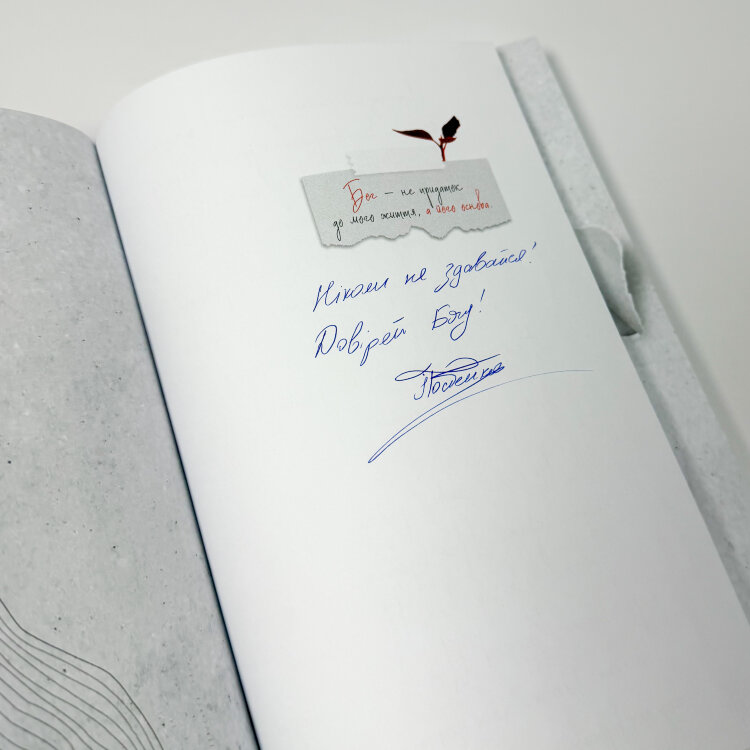 Бог – не придаток
до мого життя, а його основа.
Ніколи не здавайся!
Довіряй Богу!